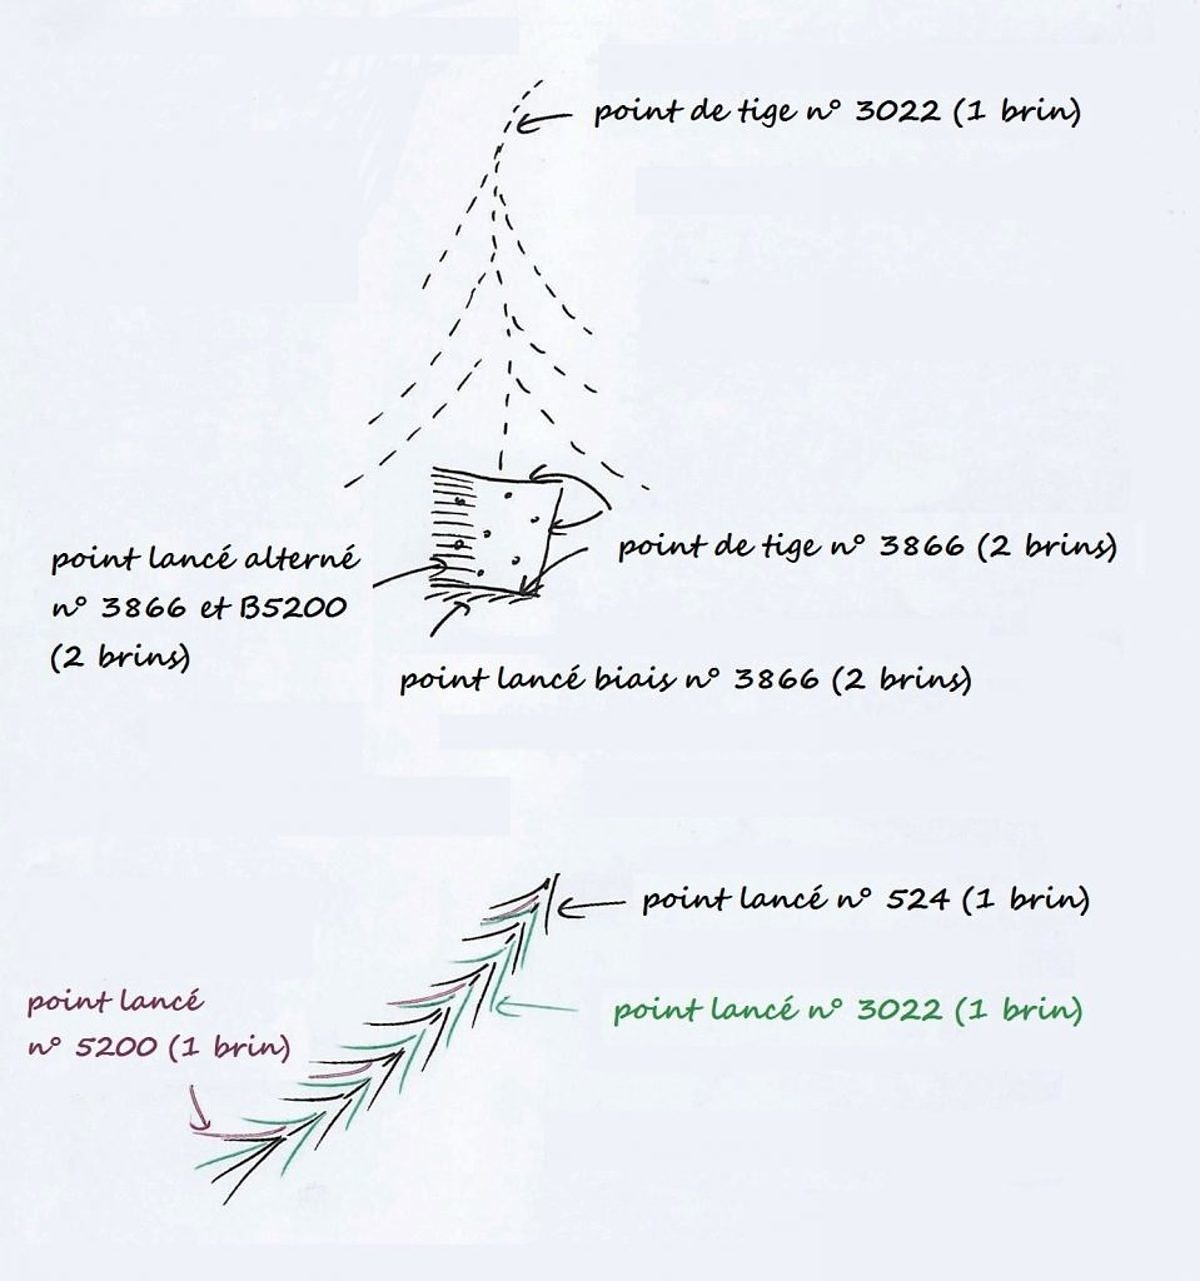 point de tige n° 3022 (1 brin)
point lancé alterné
n° 3866 et B5200
(2 brins)
point de tige n° 3866 (2 brins)
point lancé biais n° 3866 (2 brins)
point lancé n° 524 (1 brin)
point lancé
n° 5200 (1 brin)
point lancé n° 3022 (1 brin)